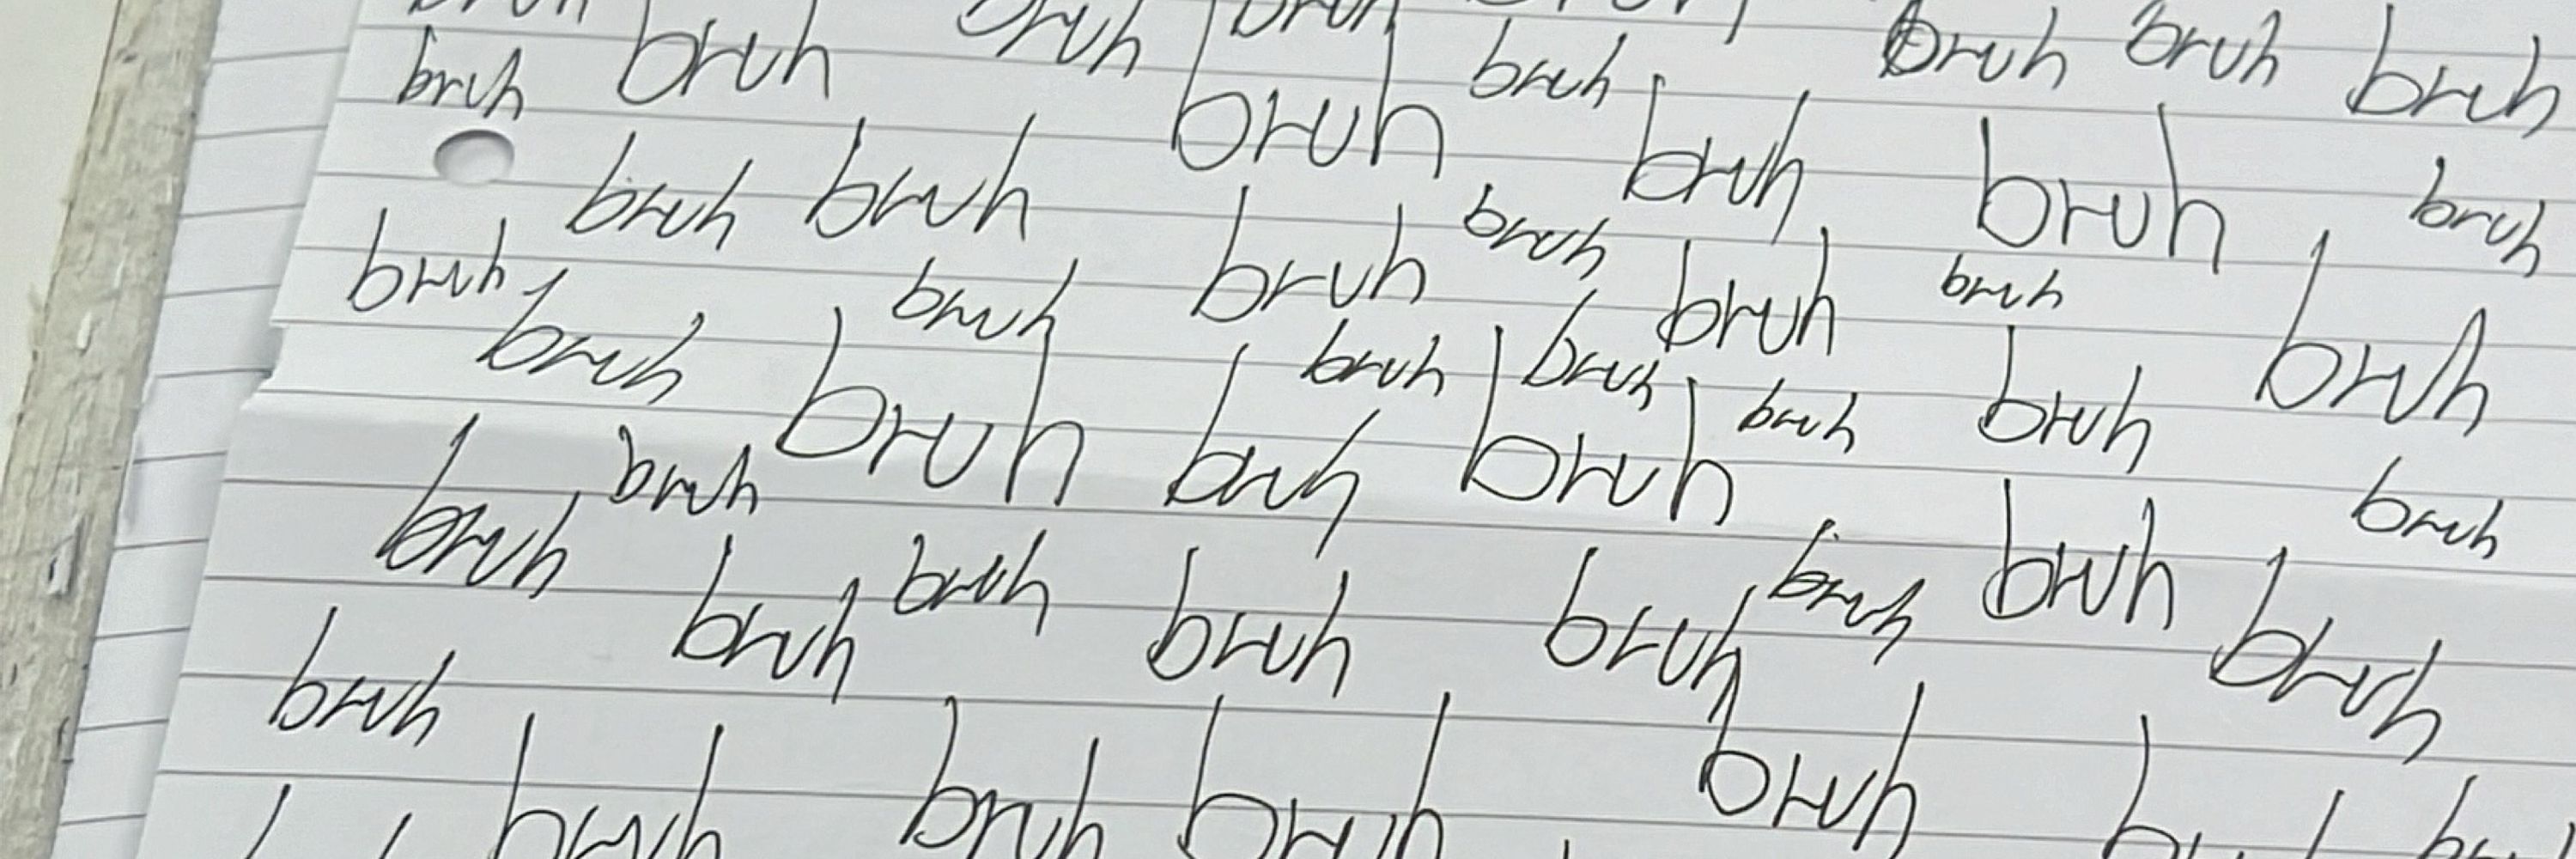 bruh bruh bruh bruh bruh bruh bruh bruh
bruh bruh bruh bruh bruh bruh
bruh bruh bruh bruh bruh bruh bruh
bruh bruh bruh bruh bruh bruh
bruh bruh bruh bruh bruh bruh
bruh bruh bruh bruh bruh bruh bruh bruh
bruh bruh bruh bruh bruh